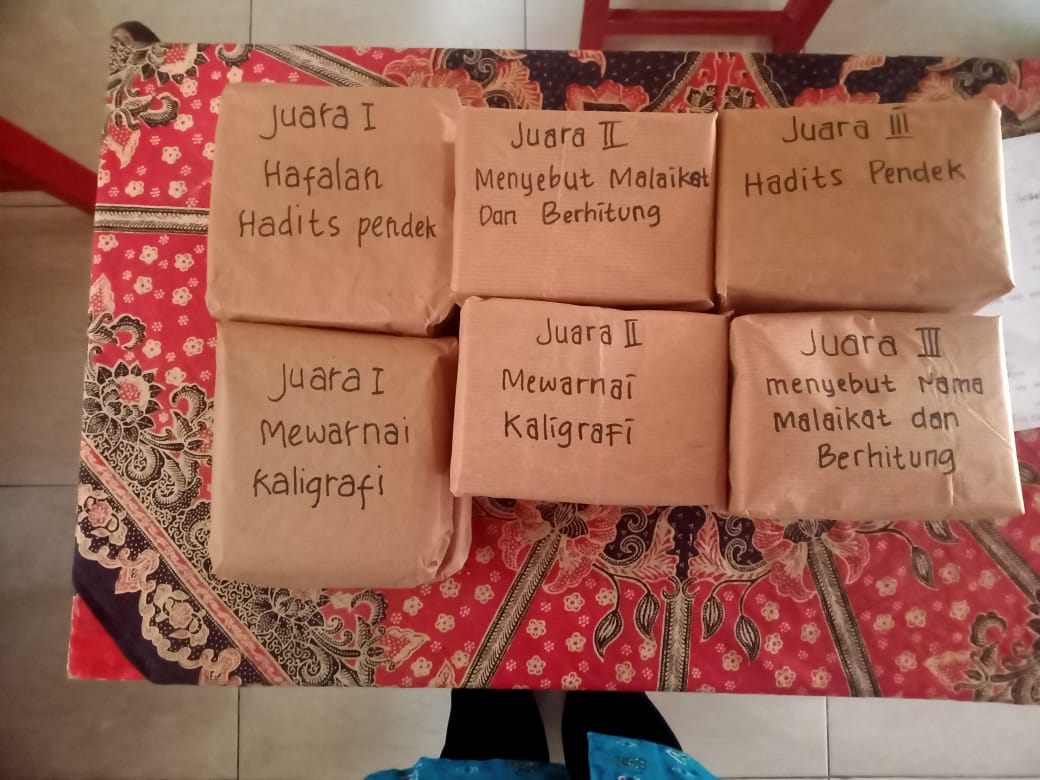 Juara I
Hafalan
Hadits pendek
Juara II
Menyebut Malaikat
Dan Berhitung
Juara III
Hadits Pendek
Juara I
Mewarnai
Kaligrafi
Juara II
Mewarnai
Kaligrafi
Juara III
menyebut Nama
Malaikat dan
Berhitung